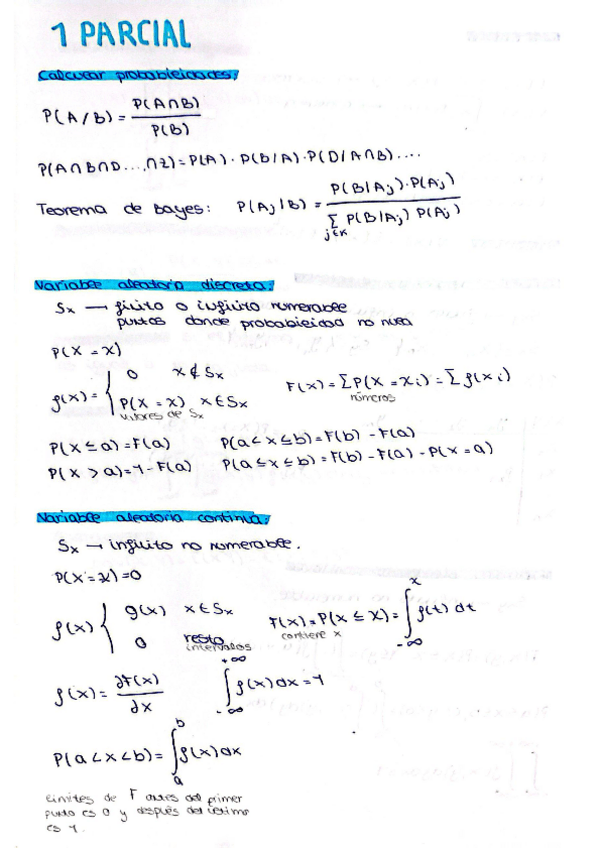 1 PARCIAL
Calcular probabilidades:
P(A/B) = P(A∩B) / P(B)
P(A∩B∩D...,∩Z) = P(A)·P(B/A)·P(D/A∩B)....
Teorema de Bayes: P(Aj|B) = P(B|Aj)·P(Aj) / ∑ j∈K P(B|Aj) P(Aj)
Variable aleatoria discreta:
Sx → finito o infinito numerable
puntos donde probabilidad no nula
P(X = x)
f(x) = { 0 x∉Sx
P(X = x) x∈Sx
valores de Sx
F(x) = ∑P(X = xi) = ∑f(xi)
números
P(X ≤ a) = F(a) P(a<x≤b) = F(b) - F(a)
P(X > a) = 1 - F(a) P(a≤x≤b) = F(b) - F(a) - P(x = a)
Variable aleatoria continua:
Sx → infinito no numerable.
P(X = x) = 0
f(x) { g(x) x∈Sx
0 resto
intervalos
F(x) = P(X ≤ x) = ∫ -∞ x f(t) dt
contiene x
f(x) = ∂F(x) / ∂x ∫ -∞ +∞ f(x) dx = 1
P(a<x<b) = ∫ a b f(x) dx
Límites de F antes del primer
punto es 0 y después del último
es 1.